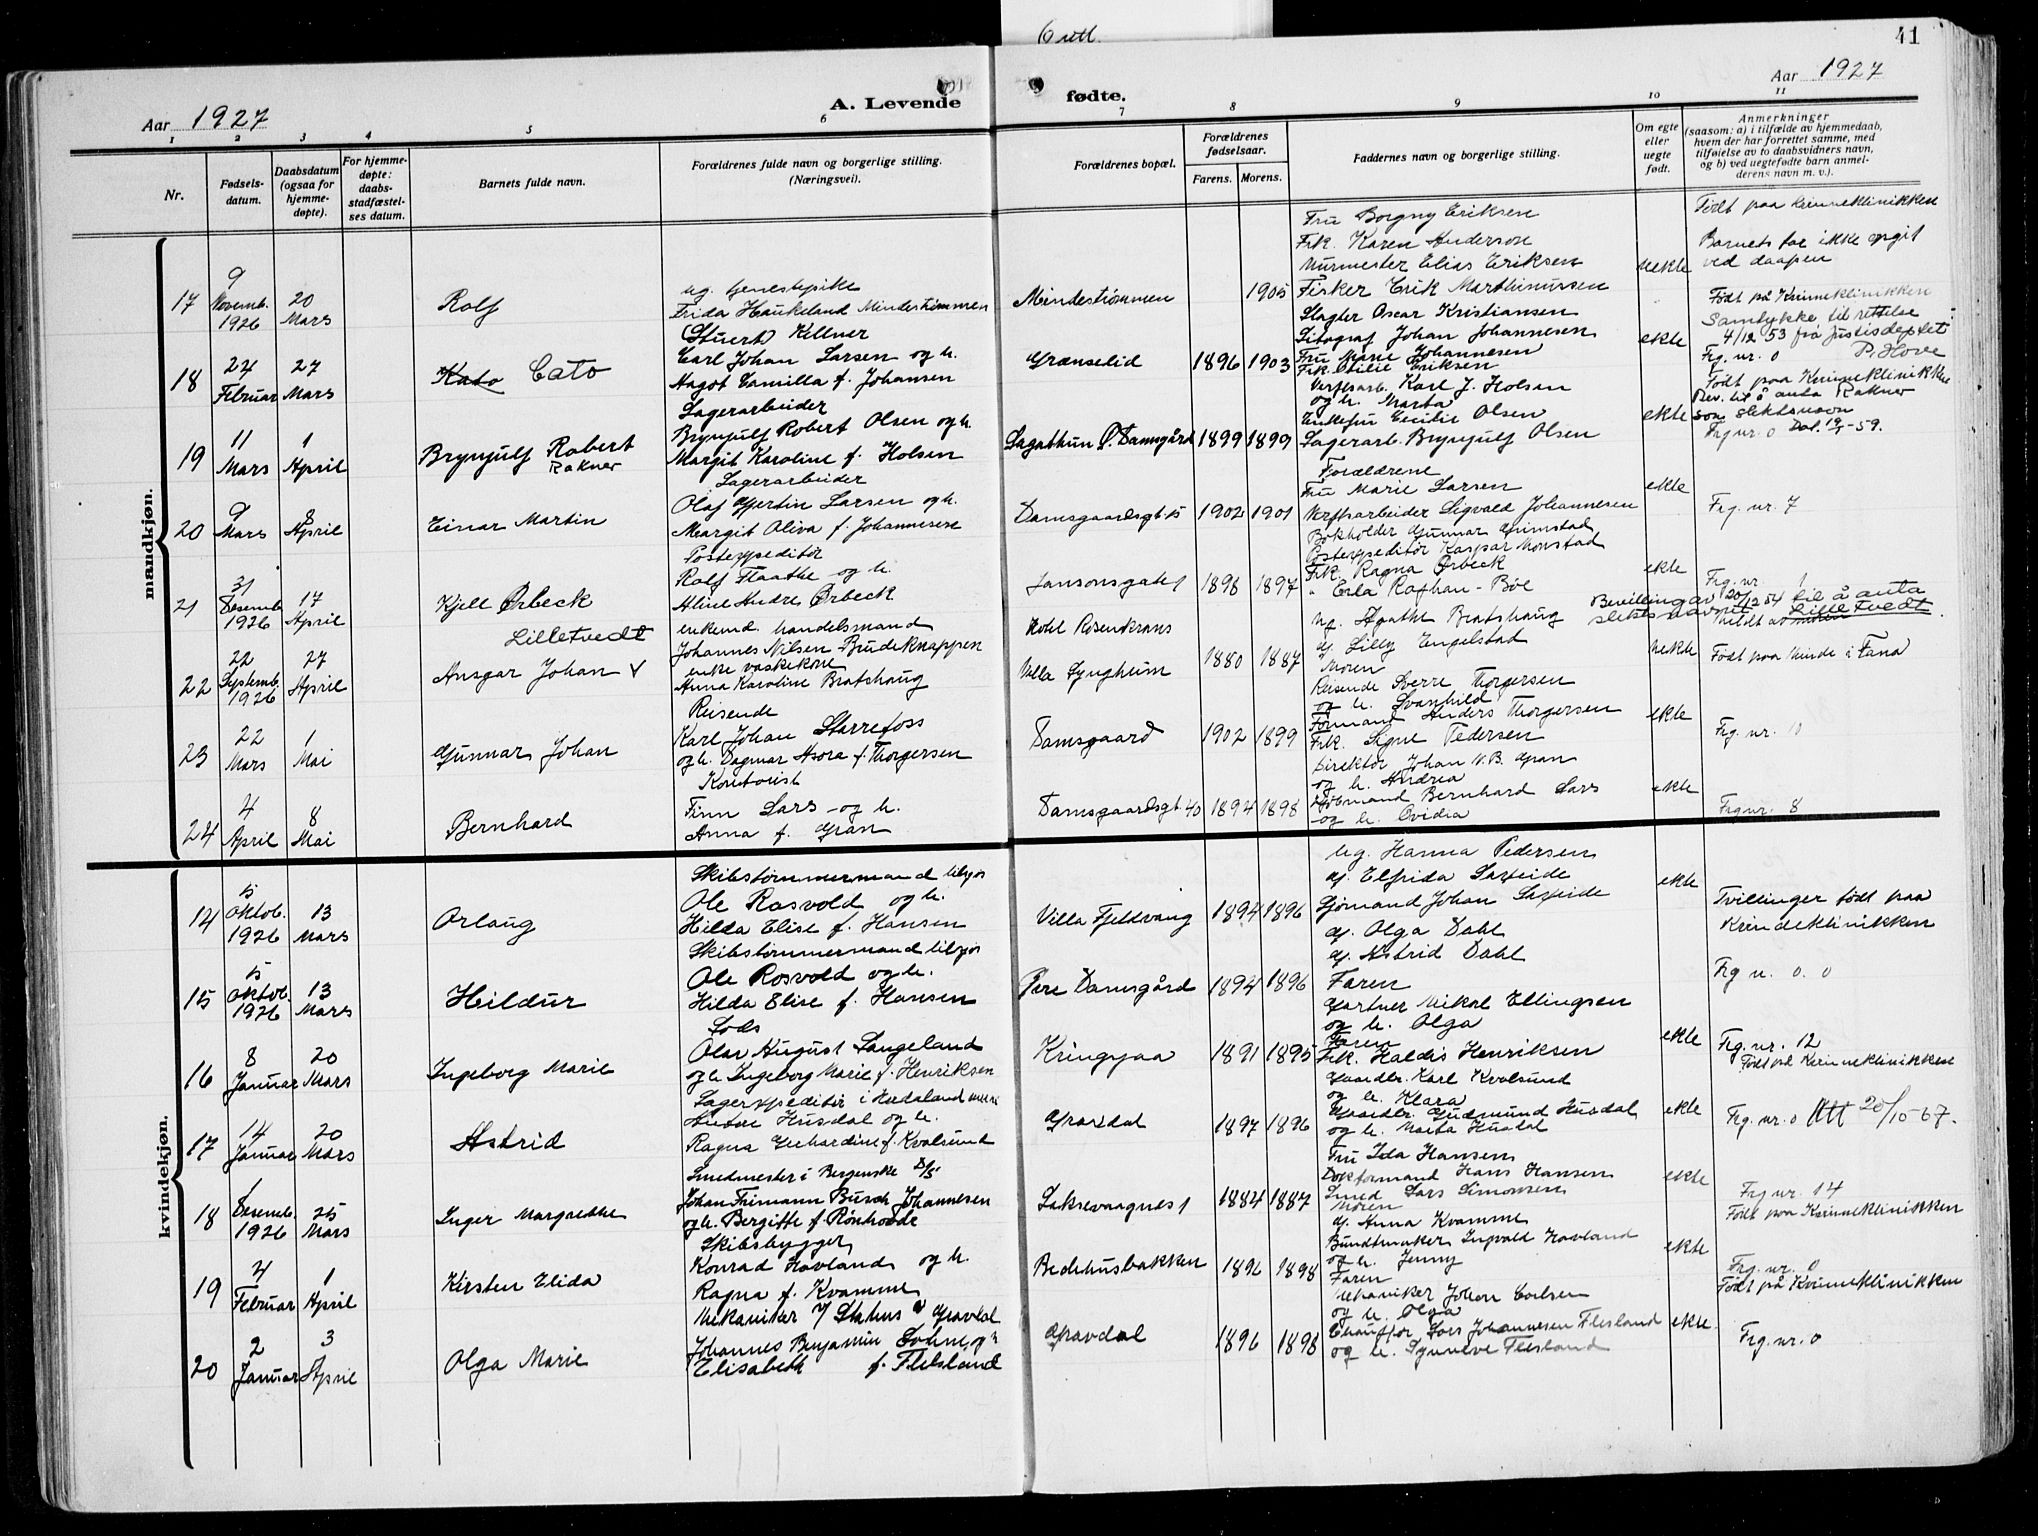 6 utl.
41
Aar 1927
A. Levende
fødte.
Aar 1927
1 2 3 4 5 6 7 8 9 10 11
Nr.
Fødsels-
datum.
Daabsdatum
(ogsaa for
hjemme-
døpte).
For hjemme-
døpte:
daabs-
stadfæstel-
ses datum.
Barnets fulde navn.
Forældrenes fulde navn og borgerlige stilling.
(Næringsvei).
Forældrenes bopæl.
Forældrenes
fødselsaar.
Farens. Morens.
Faddernes navn og borgerlige stilling.
Om egte
eller
uegte
født.
Anmerkninger
(saasom: a) i tilfælde av hjemmedaab,
hvem der har forrettet samme, med
tilføielse av to daabsvidners navn,
og b) ved uegtefødte barn anmel-
derens navn m. v.).
mandkjøn.
17
9
Novemb.
1926
20
Mars
Rolf
ug. tjenestepike
Frida Haukeland Mindestrømmen
Mindestrømmen
1905
Fru Borgny Eriksen
Frk. Karen Anderson
Murmester Elias Eriksen
Fisker Erik Marthinussen
uekte
Født paa Kvinneklinikken
Barnets far ikke opgit
ved daapen
18
24
Februar
27
Mars
Kato Cato
(Stuert) Kellner
Carl Johan Larsen og h.
Hagot Camilla f. Johansen
Grænselid
1896 1903
Slagter Oscar Kristiansen
Litograf Johan Johannesen
Fru Marie Johannesen
Frk. Otilie Eriksen
ekte
Født på Kvinneklinikken
Samtykke til rettelse
4/12 53 fra Justisdeptet
Frg. nr. 0 P. Hove
19
11
Mars
1
April
Brynjulf Robert
Rakner
Lagerarbeider
Brynjulf Robert Olsen og h.
Margit Karoline f. Holsen
Lagathun P. Damsgård
1899 1899
Verftsarb. Karl J. Holsen
og h. Marta
Enkefru Cecilie Olsen
Lagerarb. Brynjulf Olsen
ekte
Født paa Kvinneklinikken
Bev. til å anta Rakner
som slektsnavn
Frg nr. 0
20
9
Mars
8
April
Einar Martin
Lagerarbeider
Olaf Gjertin Larsen og h.
Margit Oliva f. Johannesen
Damsgaardsgt. 15
1902 1901
Forældrene
Fru Marie Larsen
Verftsarbeider Sigvald Johannesen
ekte
Frg. nr. 7
21
31
Desemb.
1926
17
April
Kjell Ørbeck
Postexpeditør
Rolf Flaathe og h.
Aline Andre Ørbeck
Jansonsgate 1
1898 1897
Bokholder Gunnar Grimstad
Postexpeditør Kaspar Monstad
Frk. Ragna Ørbeck
" Erla Rafhan-Bøe
ekte
Frg. nr. 1
22
22
Septemb.
1926
27
April
Lilletvedt
Ansgar Johan V
enkemd. handelsmand
Johannes Nilsen Brudeknappen
enke vaskekone
Anna Karoline Bratshaug
Hotel Rosenkrans
Villa Lyngheim
1880 1887
ug. Agathe Bratshaug
gf. Lilly Engelstad
Moren
uekte
Bevilling av 20/12 54 til å anta
slektsnavnet Lilletvedt
Født paa Minde i Fana
23
22
Mars
1
Mai
Gunnar Johan
Reisende
Karl Johan Starrefoss
og h. Dagmar Asora f. Thorgersen
Damsgaard
1902 1899
Reisende Sverre Thorgersen
og h. Svanhild
Formand Anders Thorgersen
Frk. Signe Pedersen
ekte
Frg. nr. 10
24
4
April
8
Mai
Bernhard
Kontorist
Finn Lars og h.
Anna f. Gran
Damsgaardsgt. 40
1894 1898
Direktør Johan N. B. Gran
og h. Andrea
Kjøbmand Bernhard Lars
og h. Ovidia
ekte
Frg nr. 8
kvindekjøn.
14
15
Oktob.
1926
13
Mars
Orlaug
Skibstømmermand tilsjøs
Ole Rosvold og h.
Hilda Elise f. Hansen
Villa Fjeldvang
1894 1896
Ug. Hanna Pedersen
gf. Elfrida Saxeide
Sjømand Johan Saxeide
ekte
Tvillinger født paa
Kvindeklinikken
15
15
Oktob.
1926
13
Mars
Hildur
Skibstømmermand tilsjøs
Ole Rosvold og h.
Hilda Elise f. Hansen
Øvre Damsgård
1894 1896
gf. Olga Dahl
gf. Astrid Dahl
Faren
Frg n. 0. 0
16
8
Januar
20
Mars
Ingeborg Marie
Lods
Olav August Langeland
og h. Ingeborg Marie f. Henriksen
Kringsjaa
1891 1895
Gartner Nikal Ellingsen
og h. Olga
Faren
Frk. Haldis Henriksen
ekte
Frg. nr. 12
17
14
Januar
20
Mars
Astrid
Lagerexpeditør i Hordaland
Anton Husdal og h.
Ragna Gerhardine f. Kvalsund
Gravdal
1897 1896
Gaardbr. Karl Kvalsund
og h. Klara
Gaardbr. Gudmund Husdal
og h. Marta Husdal
ekte
Født på Kvinneklinikken
Frg. nr. 0 Att 20/10-67.
18
1
Desemb.
1926
25
Mars
Inger Margrethe
Smedmester i Bergenske D/S
Johan Frimann Busch Johannesen
og h. Bergitte f. Rønhovde
Laksevaagnes 1
1884 1887
Fru Ida Hansen
Dokformand Hans Hansen
Smed Lars Simonsen
Moren
ekte
Frg nr. 14
19
4
Februar
1
April
Kirsten Elida
Skibsbygger
Konrad Havland og h.
Ragna f. Kvamme
Bedehusbakken
1896 1898
gf. Anna Kvamme
Bundtmaker Ingvald Havland
og h. Jenny
Faren
ekte
Født paa Kvinneklinikken
Frg. nr. 0
20
2
Januar
3
April
Olga Marie
Mekaniker Gravdal
Johannes Benjamin
Elisabeth f. Flesland
Gravdal
1896 1898
Mekaniker Johan Carlsen
og h. Olga
Chauffør Lars Johannesen Flesland
og h. Synneve Flesland
ekte
Født på Kvinneklinikken
Frg. nr. 0